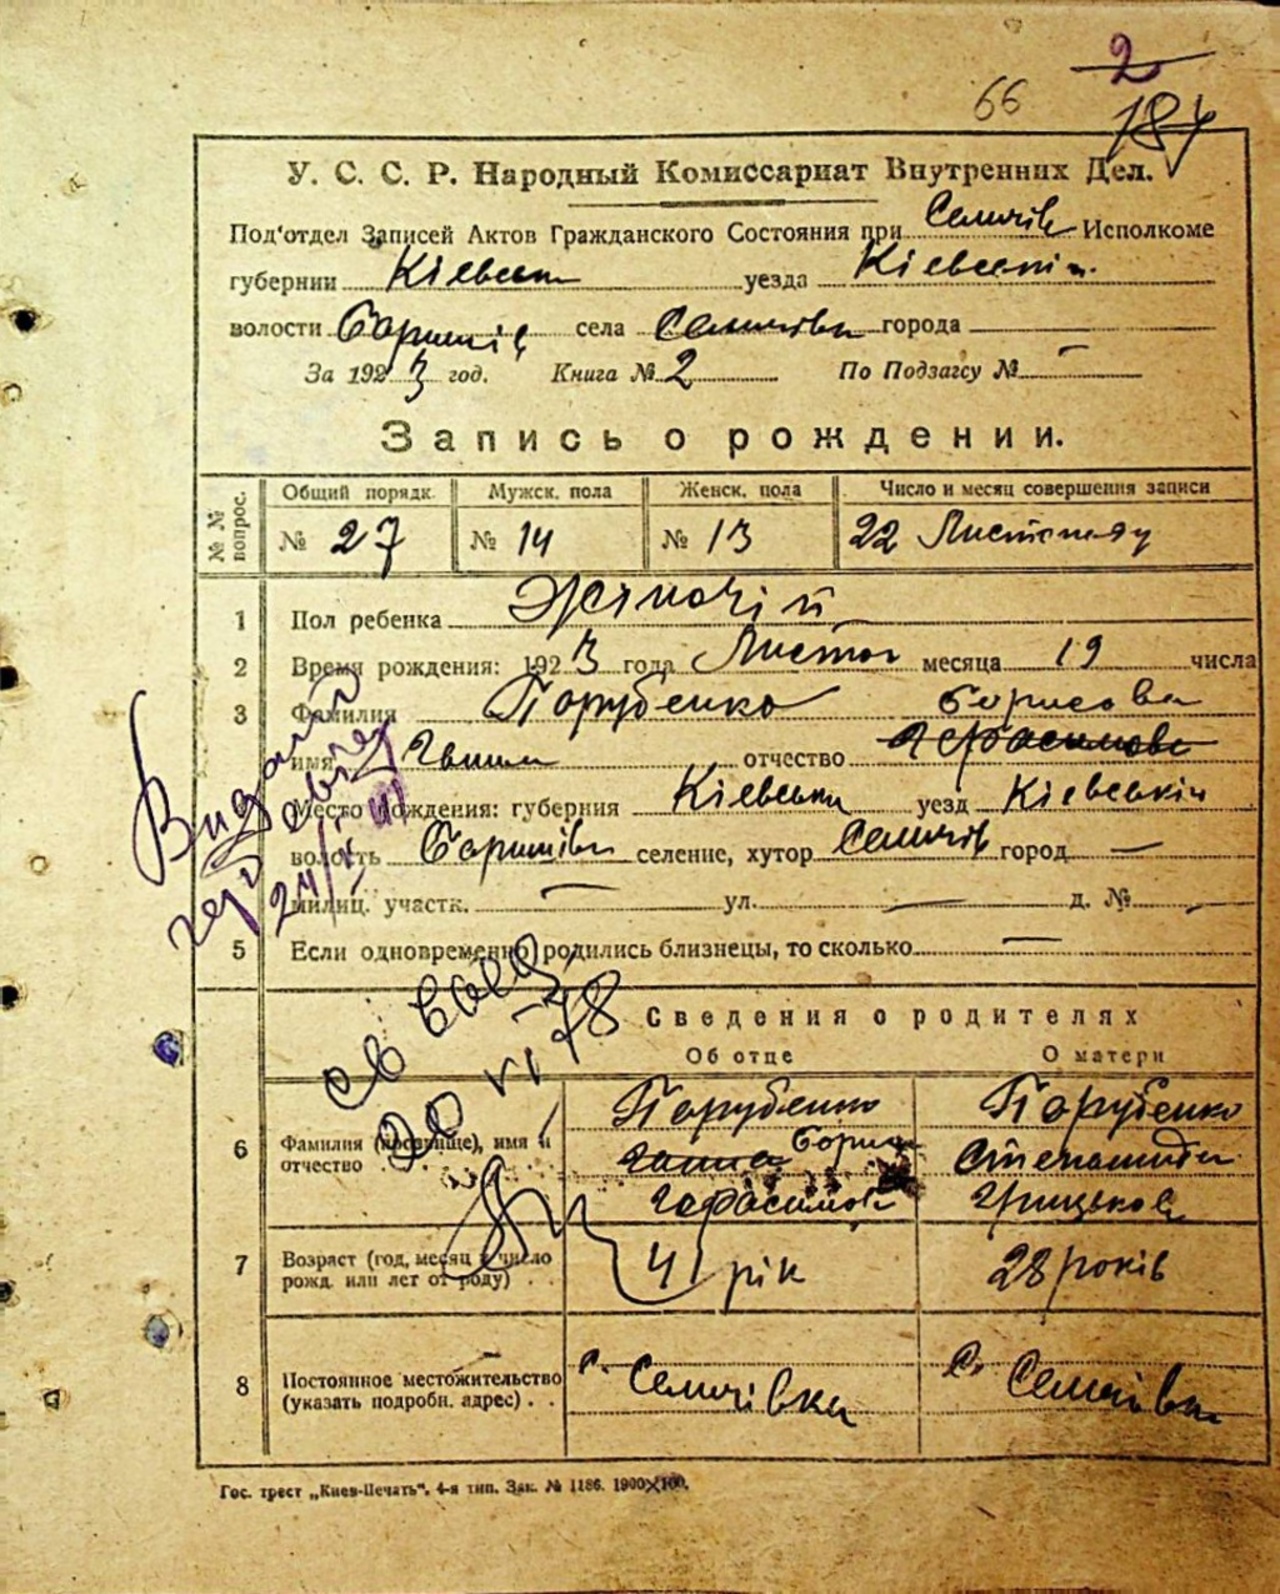 2
66
184
У. С. С. Р. Народный Комиссариат Внутренних Дел.
Под'отдел Записей Актов Гражданского Состояния при Исполкоме
губернии Кіевська уезда Кіевський
волости Баришів села города
За 1923 год. Книга № 2 По Подзагсу № —
Запись о рождении.
№ № вопрос. Общий порядк. Мужск. пола Женск. пола Число и месяц совершения записи
№ 27 № 14 № 13 22 Листопаду
1 Пол ребенка Жіночій
2 Время рождения: 1923 года Листоп месяца 19 числа
3 Фамилия Порубенко Борисова
имя Ганна отчество Герасимова
Место рождения: губерния Кіевська уезд Кіевській
волость Баришівка селение, хутор город —
милиц. участк. — ул. — д. № —
5 Если одновременно родились близнецы, то сколько —
Видано
24/X
Сведения о родителях
Об отце О матери
20 VI 78
6 Фамилия (прозвище), имя и отчество Порубенко Порубенко
Борис
Герасимов Грицьков
7 Возраст (год, месяц и число рожд. или лет от роду) 41 рік 28 років
8 Постоянное местожительство (указать подробн. адрес) с. с.
Гос. трест „Киев-Печать". 4-я тип. Зак. № 1186. 1900×100.